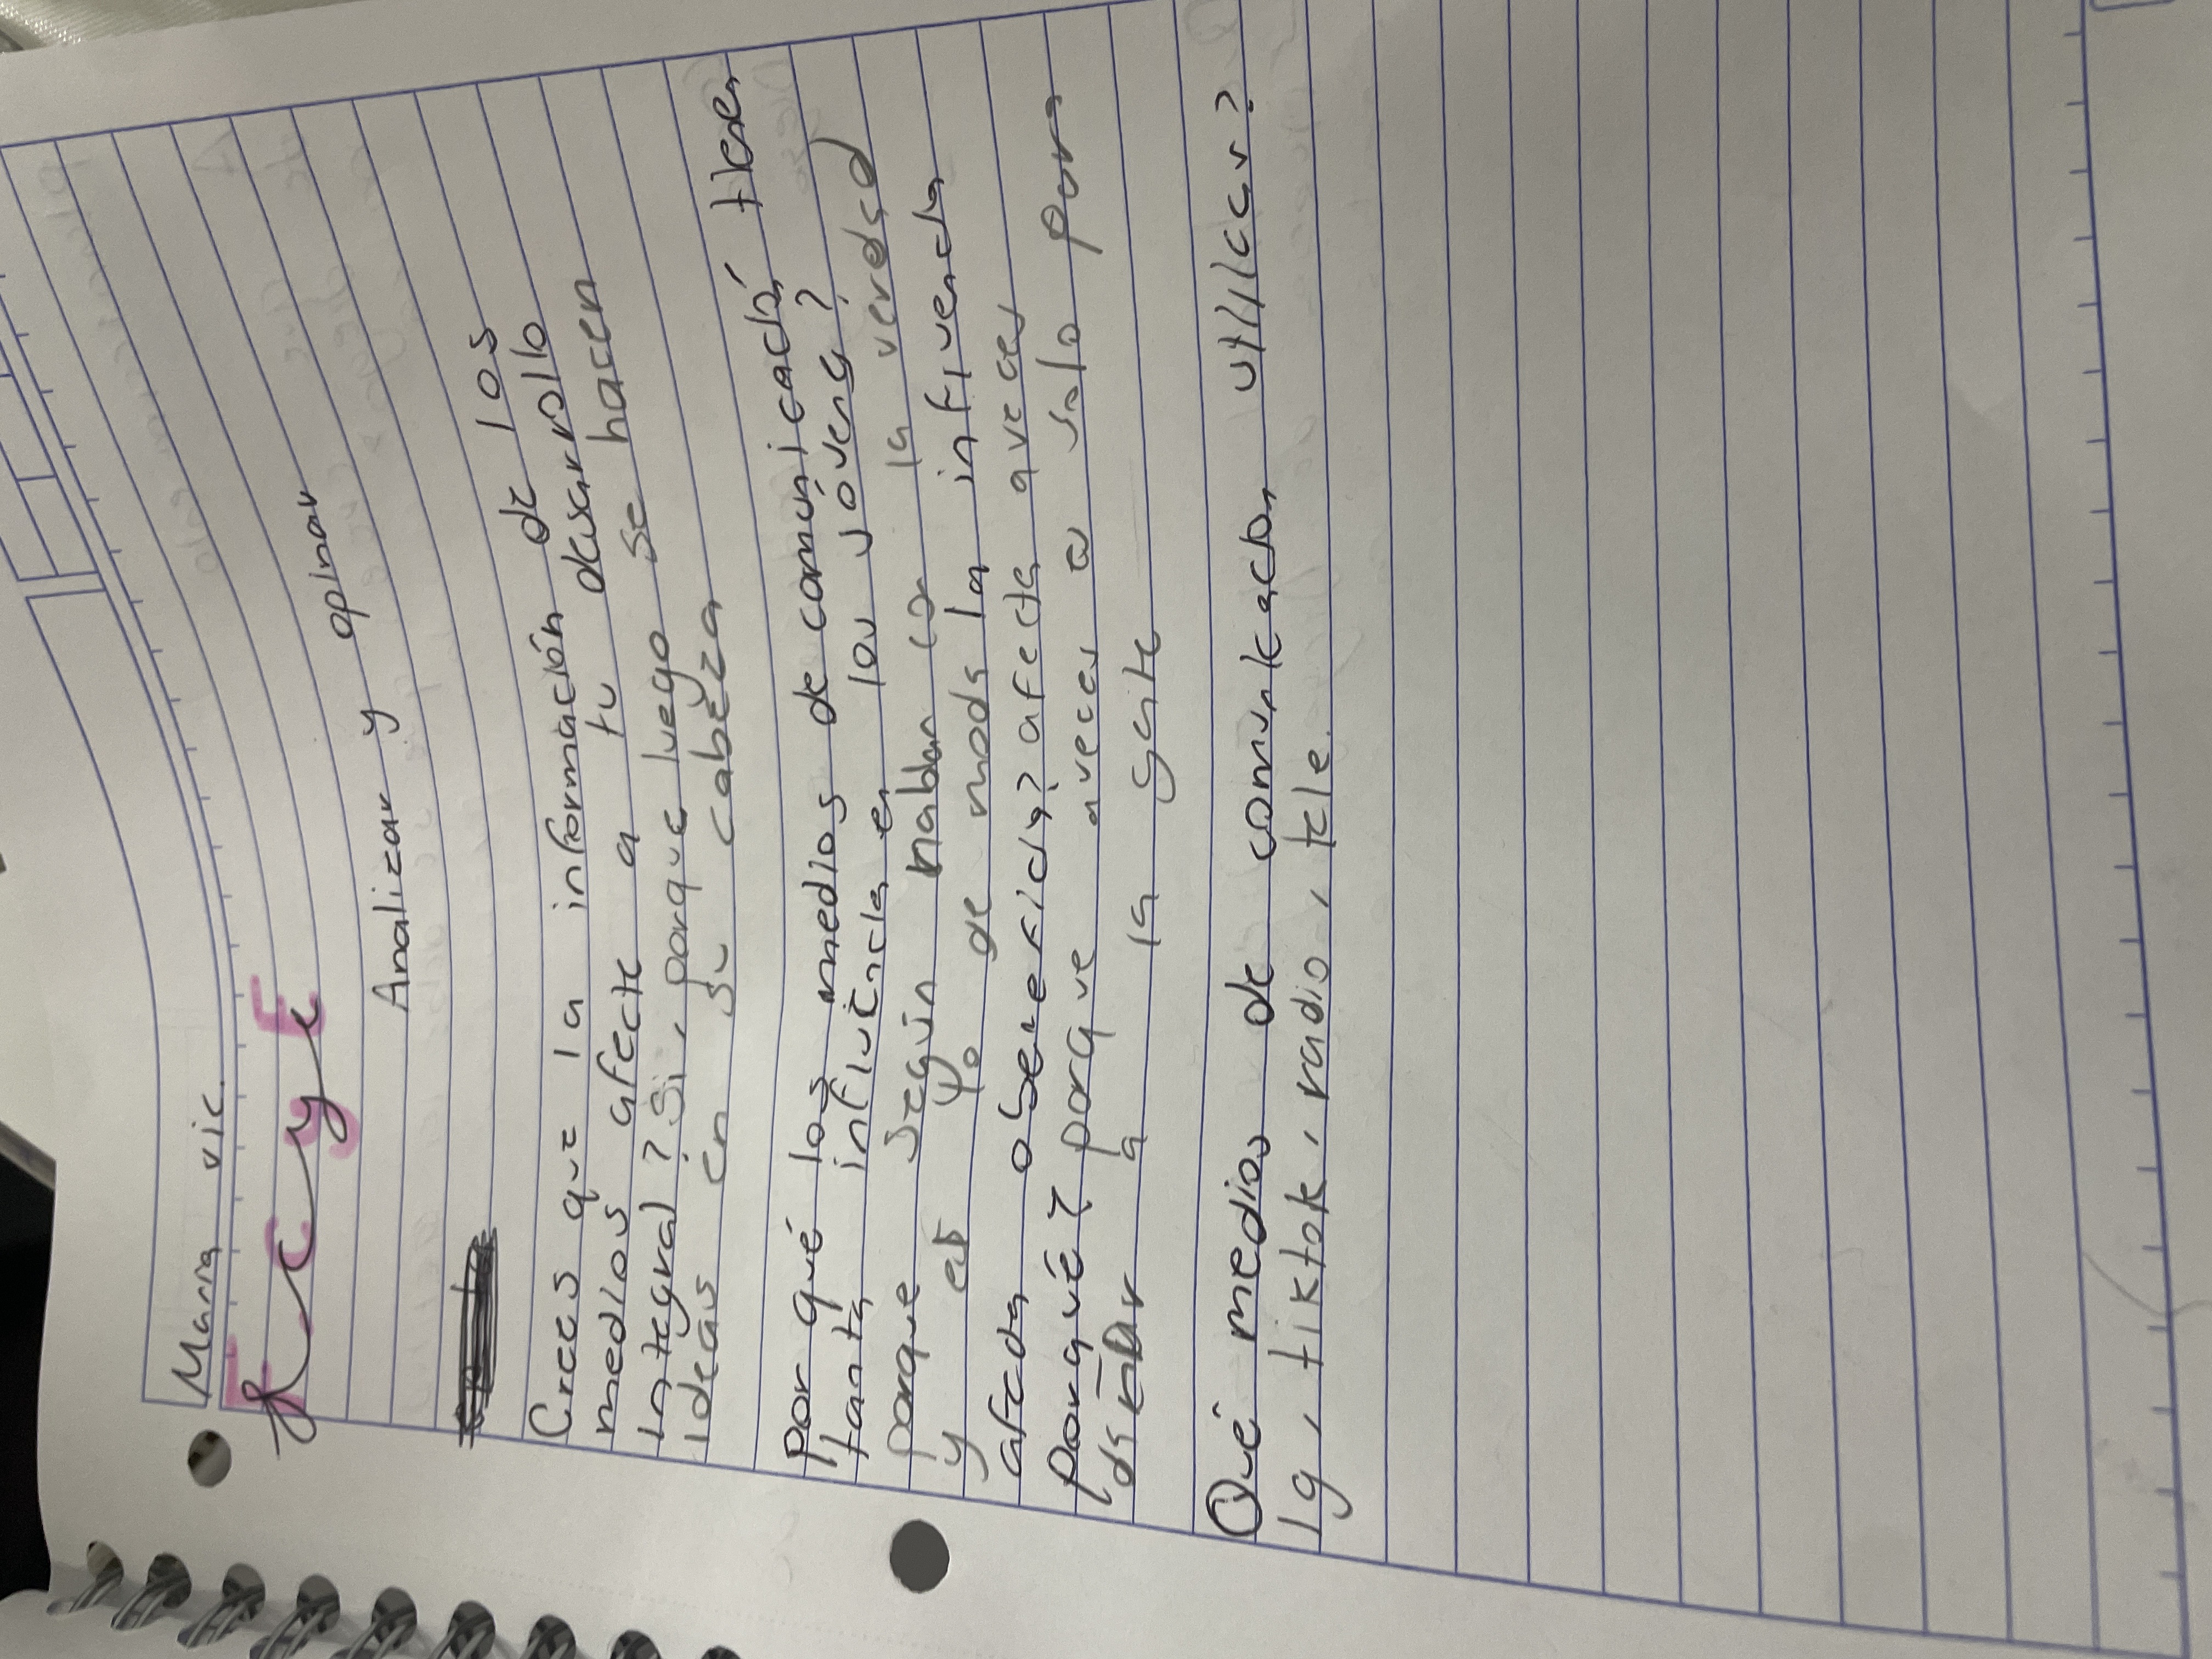 Maria vic.
F C y E
Analizar y opinar
Crees que la información de los
medios afecte a tu desarrollo
integral? Si, porque luego se hacen
ideas en su cabeza
Por qué los medios de comunicación tienen
tanta influencia en los jóvenes?
porque según hablan con la verdad
y es de moda la influencia
afecta o beneficia? afecta aveces
¿porqué? porque aveces es solo para
dañar a la gente
Qué medios de comunicación utilizar?
Ig, tiktok, radio, tele.